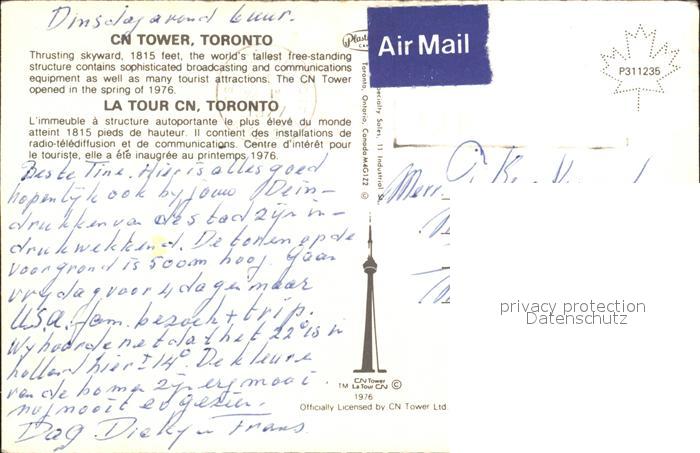 Dinsdagavond 6 uur.
CN TOWER, TORONTO
Thrusting skyward, 1815 feet, the world's tallest free-standing
structure contains sophisticated broadcasting and communications
equipment as well as many tourist attractions. The CN Tower
opened in the spring of 1976.
LA TOUR CN, TORONTO
L'immeuble à structure autoportante le plus élevé du monde
atteint 1815 pieds de hauteur. Il contient des installations de
radio-télédiffusion et de communications. Centre d'intérêt pour
le touriste, elle a été inaugrée au printemps, 1976.
Beste Tine. Hier is alles goed
hopenlijk ook by jouw. De in-
drukken van de stad zijn in-
drukwekkend. De toren op de
voorgrond is 500m hoog. Gaan
vrydag voor 4 dagen naar
U.S.A. fam. bezoek + trip.
Wy hoorde net dat het 22° is in
holland hier ± 14°. De kleure
van de bomen zyn erg mooi.
nog nooit zo gezien.
Dag. Dicky en Frans
Air Mail
P311235
Toronto, Ontario, Canada M4G 1Z2 ©
pecialty Sales, 11 Industrial St.
Mevr.
CN Tower
TM La Tour CN ©
1976
Officially Licensed by CN Tower Ltd.
privacy protection
Datenschutz